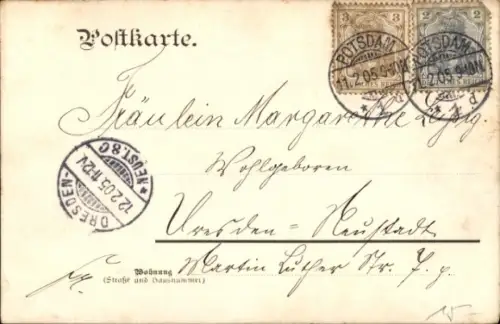 Postkarte.
3
2
POTSDAM
11.2.05. 9-10N.
POTSDAM
2.05. 9-10N.
Fräulein Margarethe
Wohlgeboren
Dresden-Neustadt
Martin Luther Str. 7. p.
DRESDEN-
12.2.05. 11-12V.
*NEUST. 8 C
Wohnung
(Straße und Hausnummer)